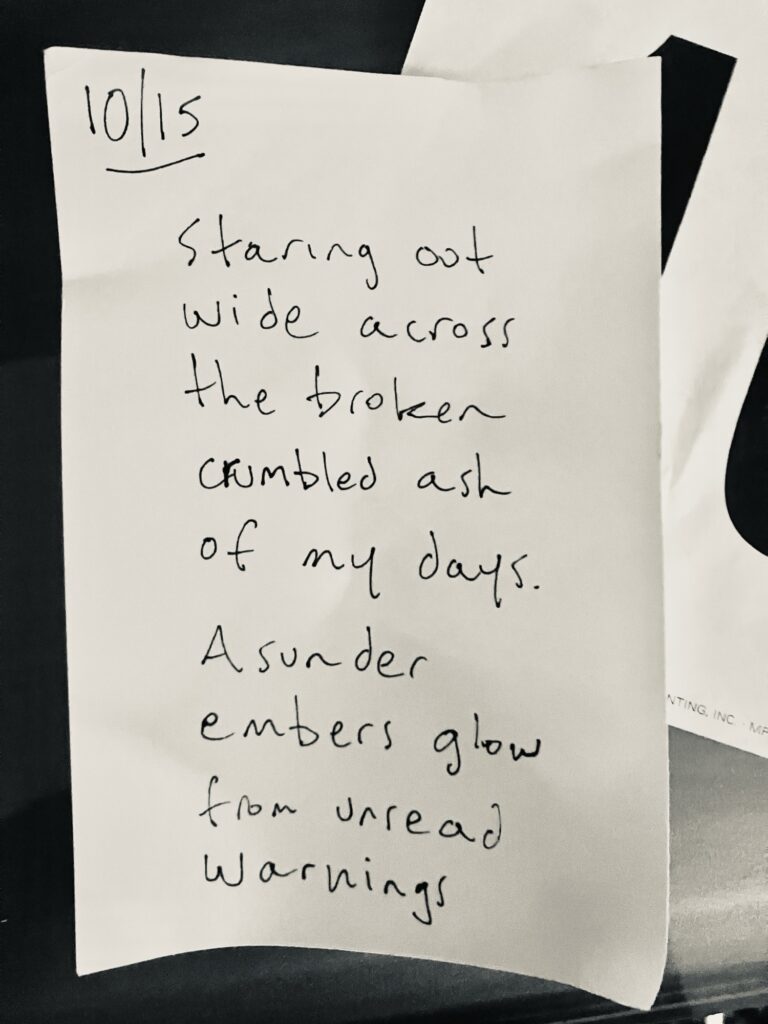 10/15
Staring out
wide across
the broken
crumbled ash
of my days.
Asunder
embers glow
from unread
warnings
NTING, INC. · MF